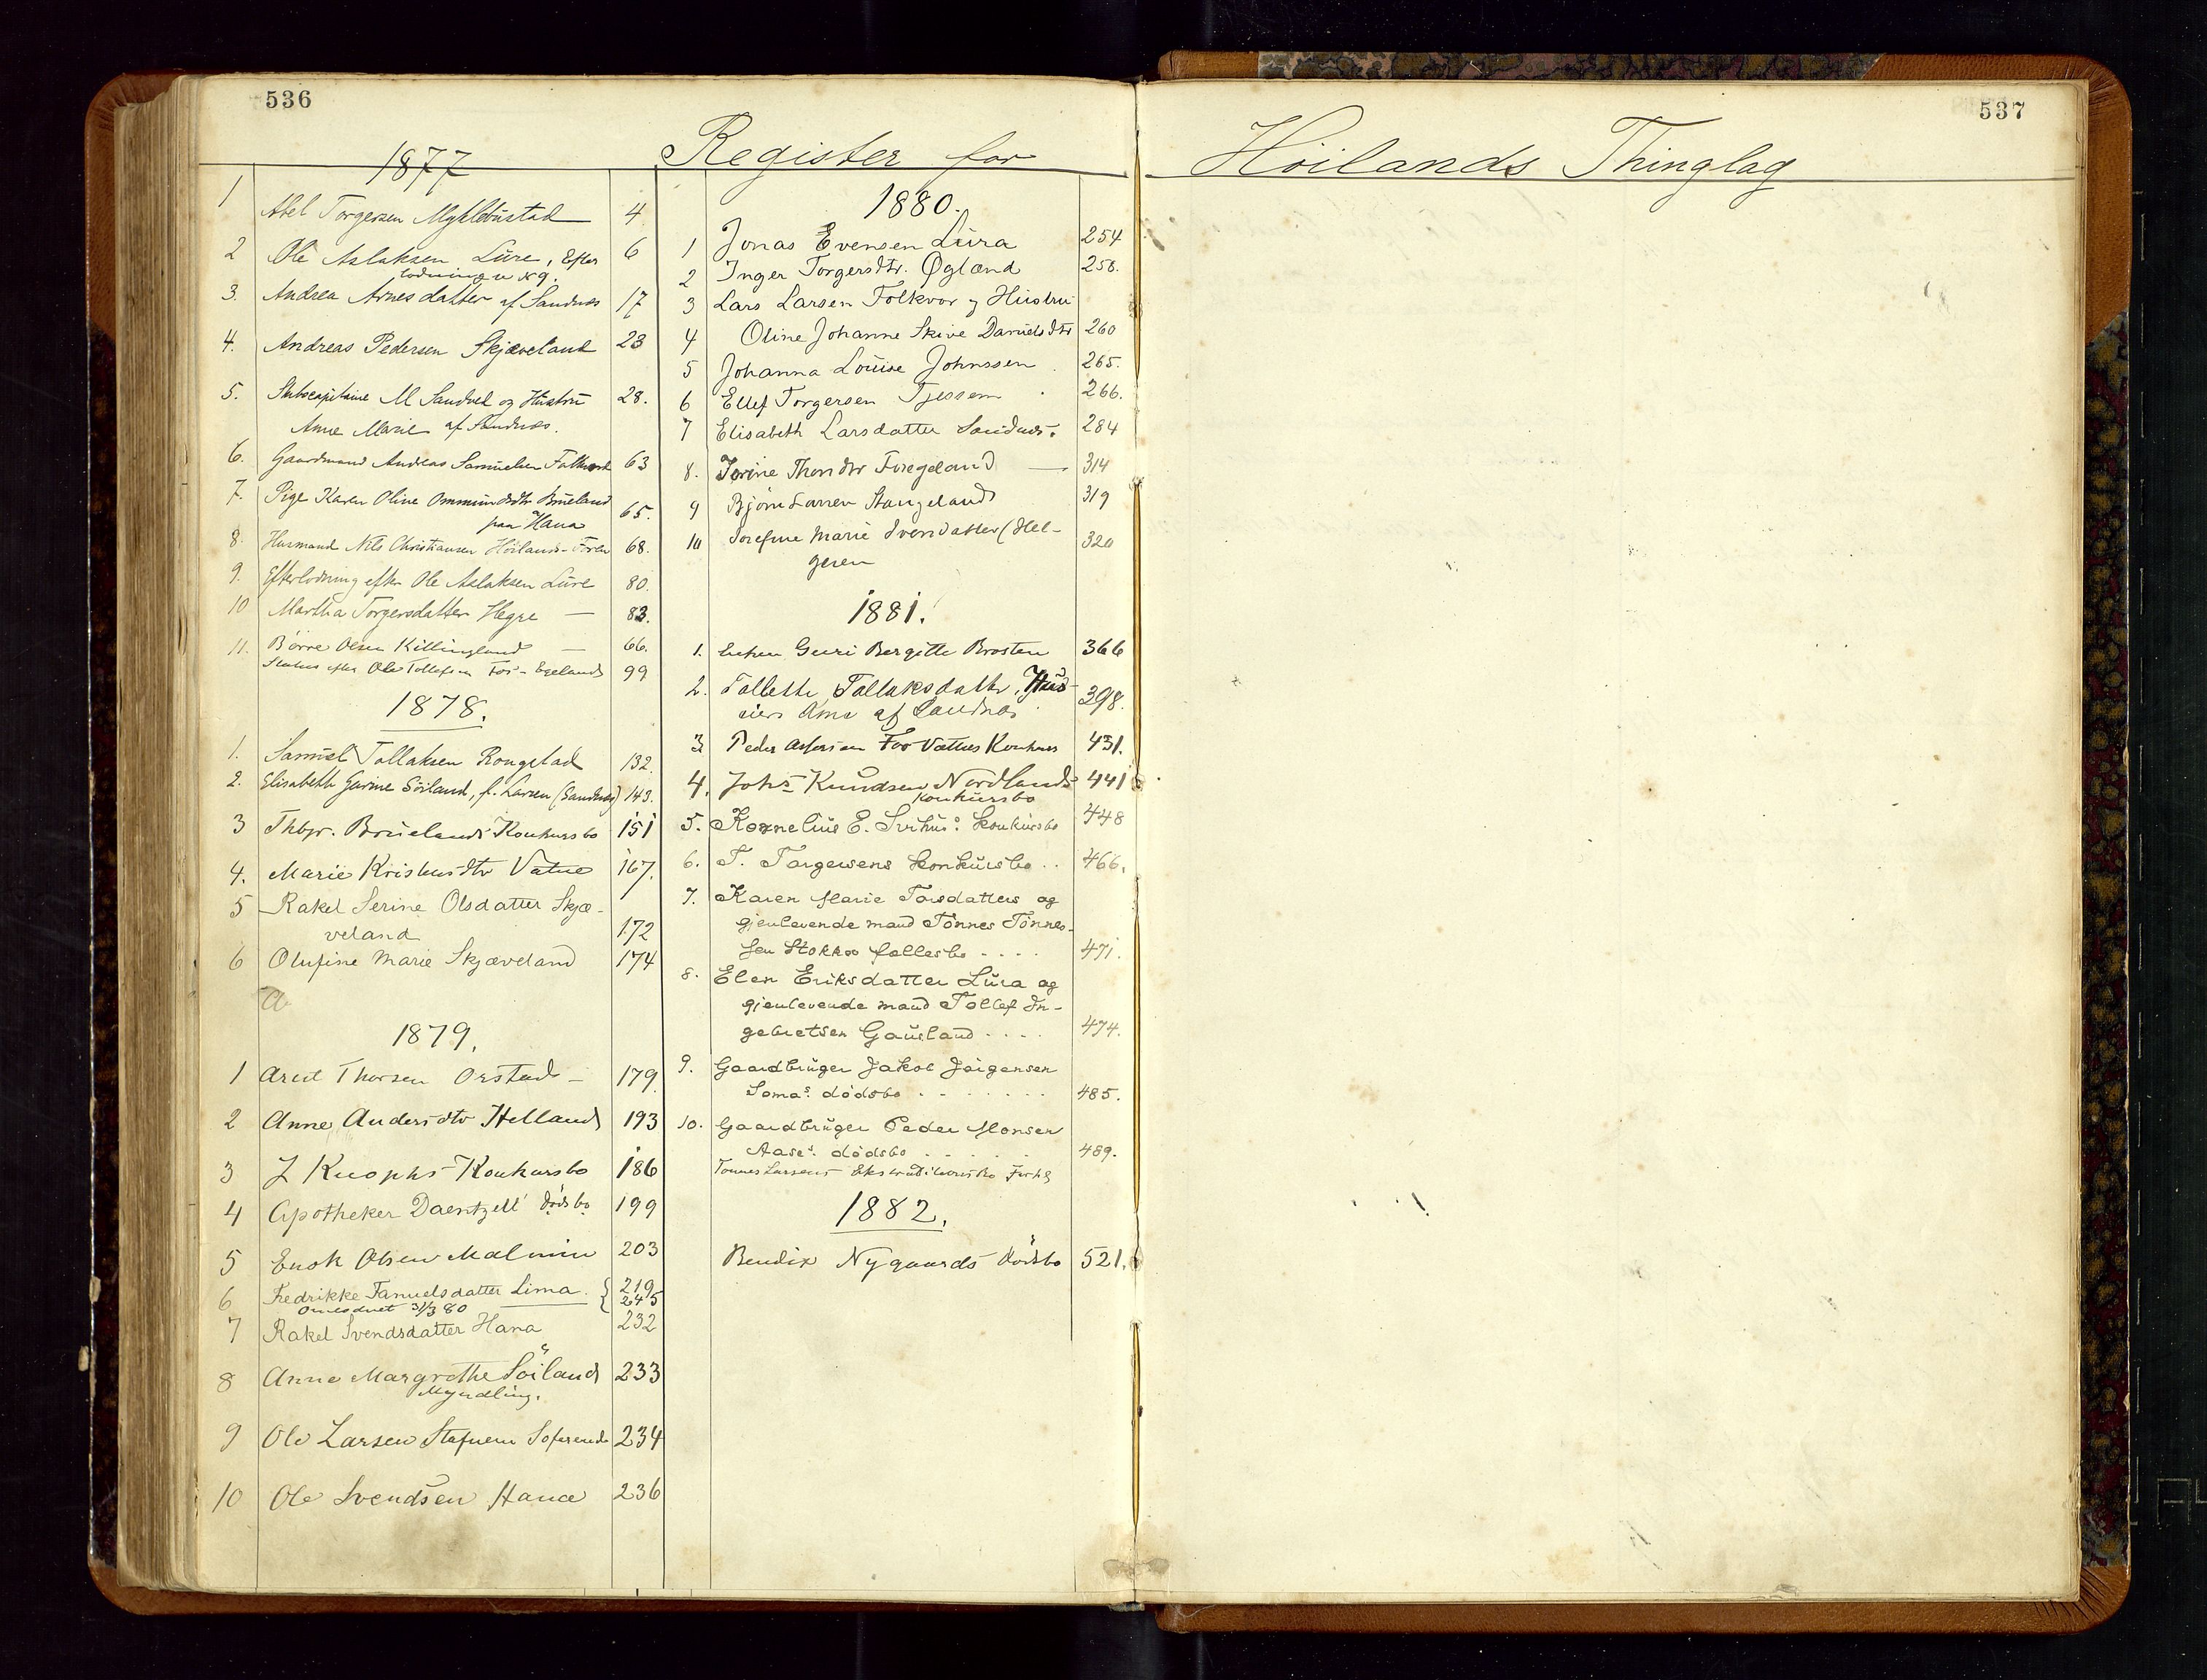 536
537
Register for Höilands Thinglag
1877
1 Abel Torgersen Myklebustad 4
2 Ole Aslaksen Lure, Efter 6
lodning N 9.
3. Andrea Arnesdatter af Sandnæs 17
4. Andreas Pedersen Skjæveland 23
5. Skibscapitaine M Sandvel og Hustru 28.
Anne Marie af Sandnæs.
6. Gaardmand Andreas Samuelsen Folkvord 63
7. Pige Karen Oline Ommundsdtr Brueland 65.
paa Hana
8. Husmand Nils Christiansen Höilands- 68.
9. Efterlodning efter Ole Aslaksen Lure 80.
10 Martha Torgersdatter Hegre — 83.
11. Börre Olsen Killingland — 66.
Status efter Ole Tollefsen Fos-Egeland 99
1878.
1. Samuel Tollaksen Rougstad 132.
2. Elisabeth Gurine Söiland, f. Larsen (Sandnæs) 143.
3 Thbjr. Bruelands Konkursbo 151
4. Marie Kristensdtr Vatne 167.
5 Rakel Serine Olsdatter Skjæ-
veland 172
6 Olufine Marie Skjæveland 174
a
1879.
1 Arent Thorsen Orstad — 179.
2 Anne Andersdtr Helland 193
3 Z Knophs Konkursbo 186
4 Apotheker Daentzell dödsbo 199
5 Enok Olsen Malmin 203
6 Fredrikke Samuelsdatter Lima. { 219
31/3 80 245
7 Rakel Svendsdatter Hana 232
8 Anne Margrethe Söiland 233
Myndling.
9 Ole Larsen 234
10 Ole Svendsen Hana 236
1880.
1 Jonas Evensen Lura 254
2 Inger Torgersdtr. Øgland 258.
3 Lars Larsen Folkvor og Hustru
4 Oline Johanne Skive Danielsdtr 260
5 Johanna Louise Johnssen . 265.
6 Ellef Torgersen Tjessem . 266.
7 Elisabeth Larsdatter Sandnæs. 284
8. Serine Thorsdtr Foregeland — 314
9 Björn Larsen Stangeland 319
10 Josefine Marie Svendsdatter (Hel- 320
gesen
1881.
1. Enken Guri Bergitte Brosten 366
2. Tollette Tollaksdatter, Hus- 398.
eiers Ame af Sandnæs
3 Peder Asserson Fos Vatnes Konkurs 431.
4. Johs Knudsen Nordlands 441
Konkursbo
5. Kornelius E. konkursbo 448
6. T. Torgersens konkursbo . . 466.
7. Karen Marie Torsdatters og
gjenlevende mand Tönnes Tönnes-
sen Stokka fællesbo . . . . 471.
8. Elen Eriksdatter Lura og
gjenlevende mand Tollef In-
gebretsen Gausland . . . . 474.
9. Gaardbruger Jakob Jörgensen
Soma's dödsbo . . . . . . . 485.
10. Gaardbruger Peder Monsen
Aase's dödsbo . . . . . . 489.
Tönnes Larsens
1882.
Bendix Nygaards dödsbo 521.